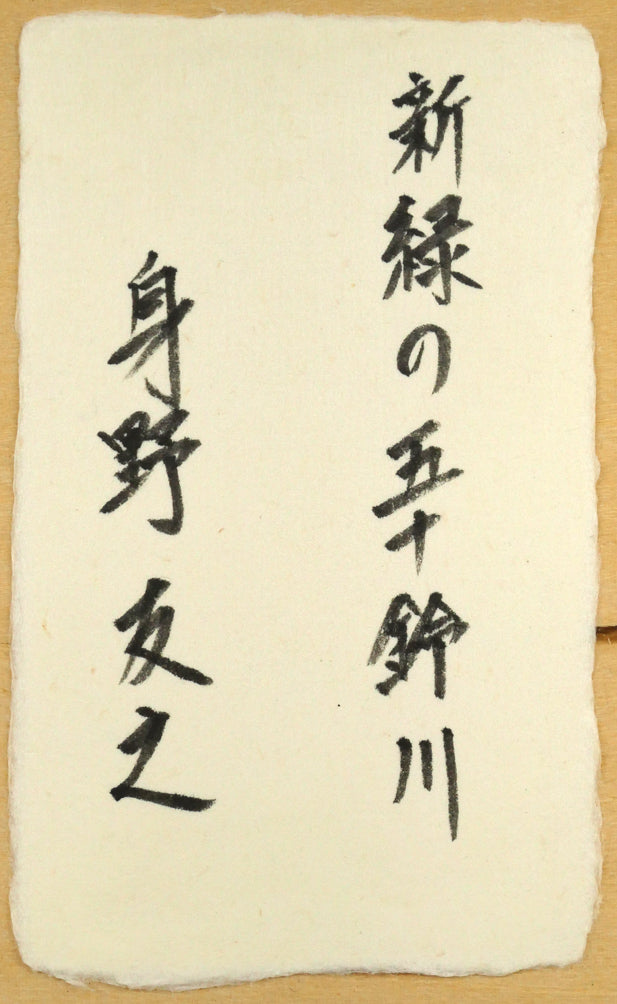 新緑の五十鈴川
身野友之